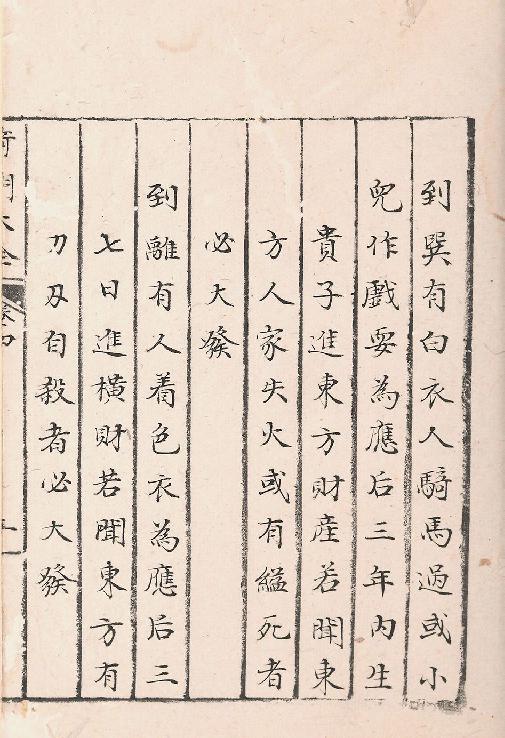 到巽有白衣人騎馬過或小
兒作戲耍為應后三年內生
貴子進東方財産若聞東
方人家失火或有縊死者
必大發
到離有人着色衣為應后三
七日進横財若聞東方有
刀刃自殺者必大發
奇門大全 卷四